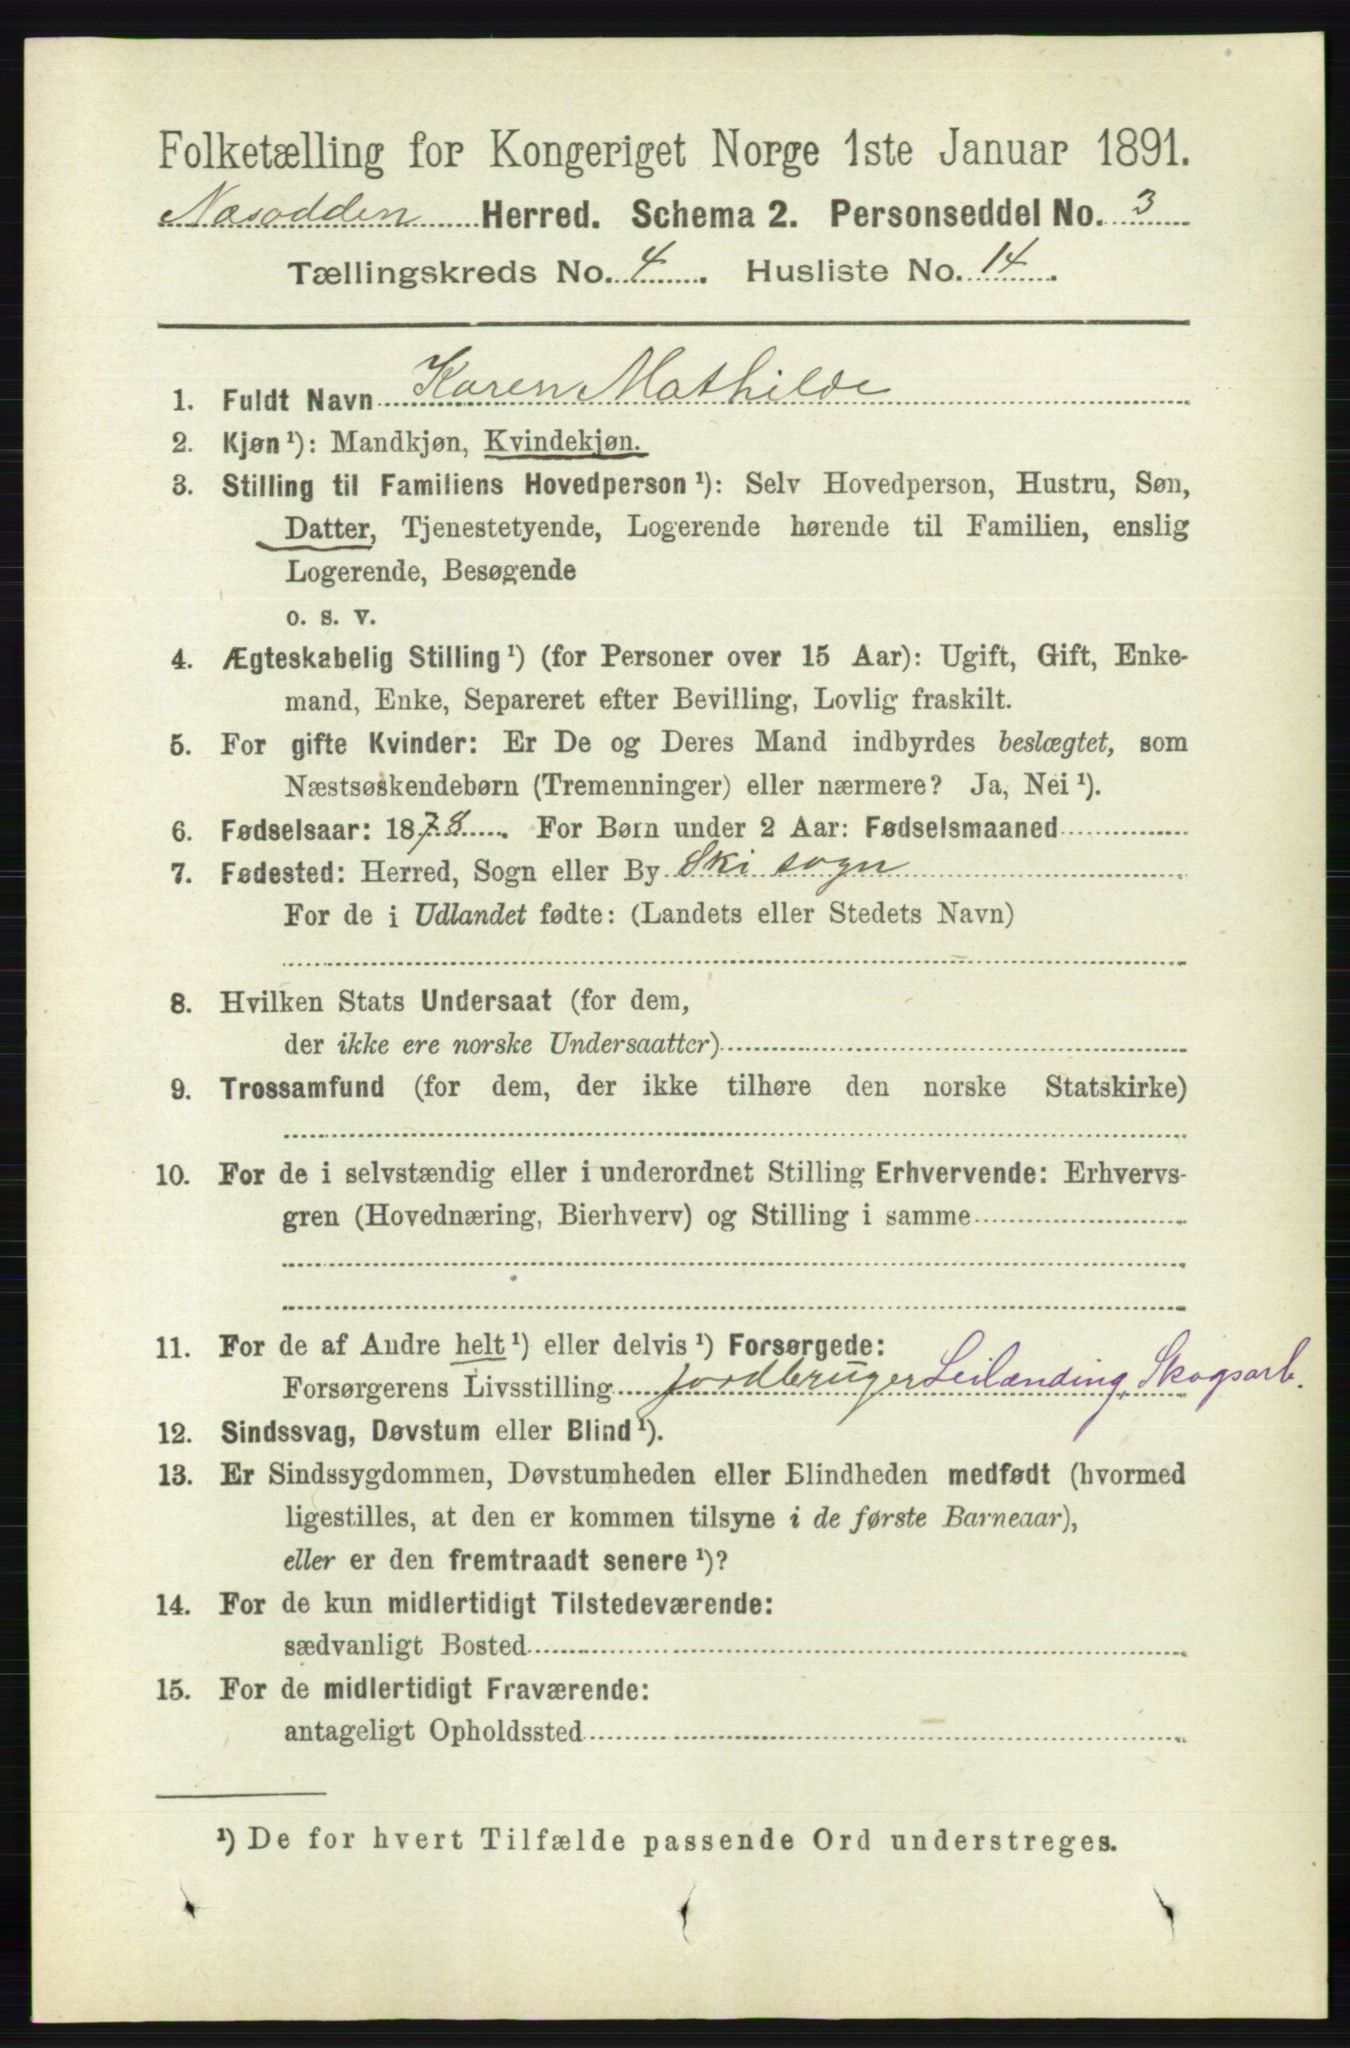 Folketælling for Kongeriget Norge 1ste Januar 1891.
Næsodden Herred. Schema 2. Personseddel No. 3
Tællingskreds No. 4. Husliste No. 14.
1. Fuldt Navn Karen Mathilde
2. Kjøn ¹): Mandkjøn, Kvindekjøn.
3. Stilling til Familiens Hovedperson ¹): Selv Hovedperson, Hustru, Søn,
Datter, Tjenestetyende, Logerende hørende til Familien, enslig
Logerende, Besøgende
o. s. v.
4. Ægteskabelig Stilling ¹) (for Personer over 15 Aar): Ugift, Gift, Enke-
mand, Enke, Separeret efter Bevilling, Lovlig fraskilt.
5. For gifte Kvinder: Er De og Deres Mand indbyrdes beslægtet, som
Næstsøskendebørn (Tremenninger) eller nærmere? Ja, Nei ¹).
6. Fødselsaar: 1878. For Børn under 2 Aar: Fødselsmaaned
7. Fødested: Herred, Sogn eller By Ski sogn
For de i Udlandet fødte: (Landets eller Stedets Navn)
8. Hvilken Stats Undersaat (for dem,
der ikke ere norske Undersaatter)
9. Trossamfund (for dem, der ikke tilhøre den norske Statskirke)
10. For de i selvstændig eller i underordnet Stilling Erhvervende: Erhvervs-
gren (Hovednæring, Bierhverv) og Stilling i samme
11. For de af Andre helt ¹) eller delvis ¹) Forsørgede:
Forsørgerens Livsstilling jordbruger Leilænding, Skogsarb.
12. Sindssvag, Døvstum eller Blind ¹).
13. Er Sindssygdommen, Døvstumheden eller Blindheden medfødt (hvormed
ligestilles, at den er kommen tilsyne i de første Barneaar),
eller er den fremtraadt senere ¹)?
14. For de kun midlertidigt Tilstedeværende:
sædvanligt Bosted
15. For de midlertidigt Fraværende:
antageligt Opholdssted
¹) De for hvert Tilfælde passende Ord understreges.